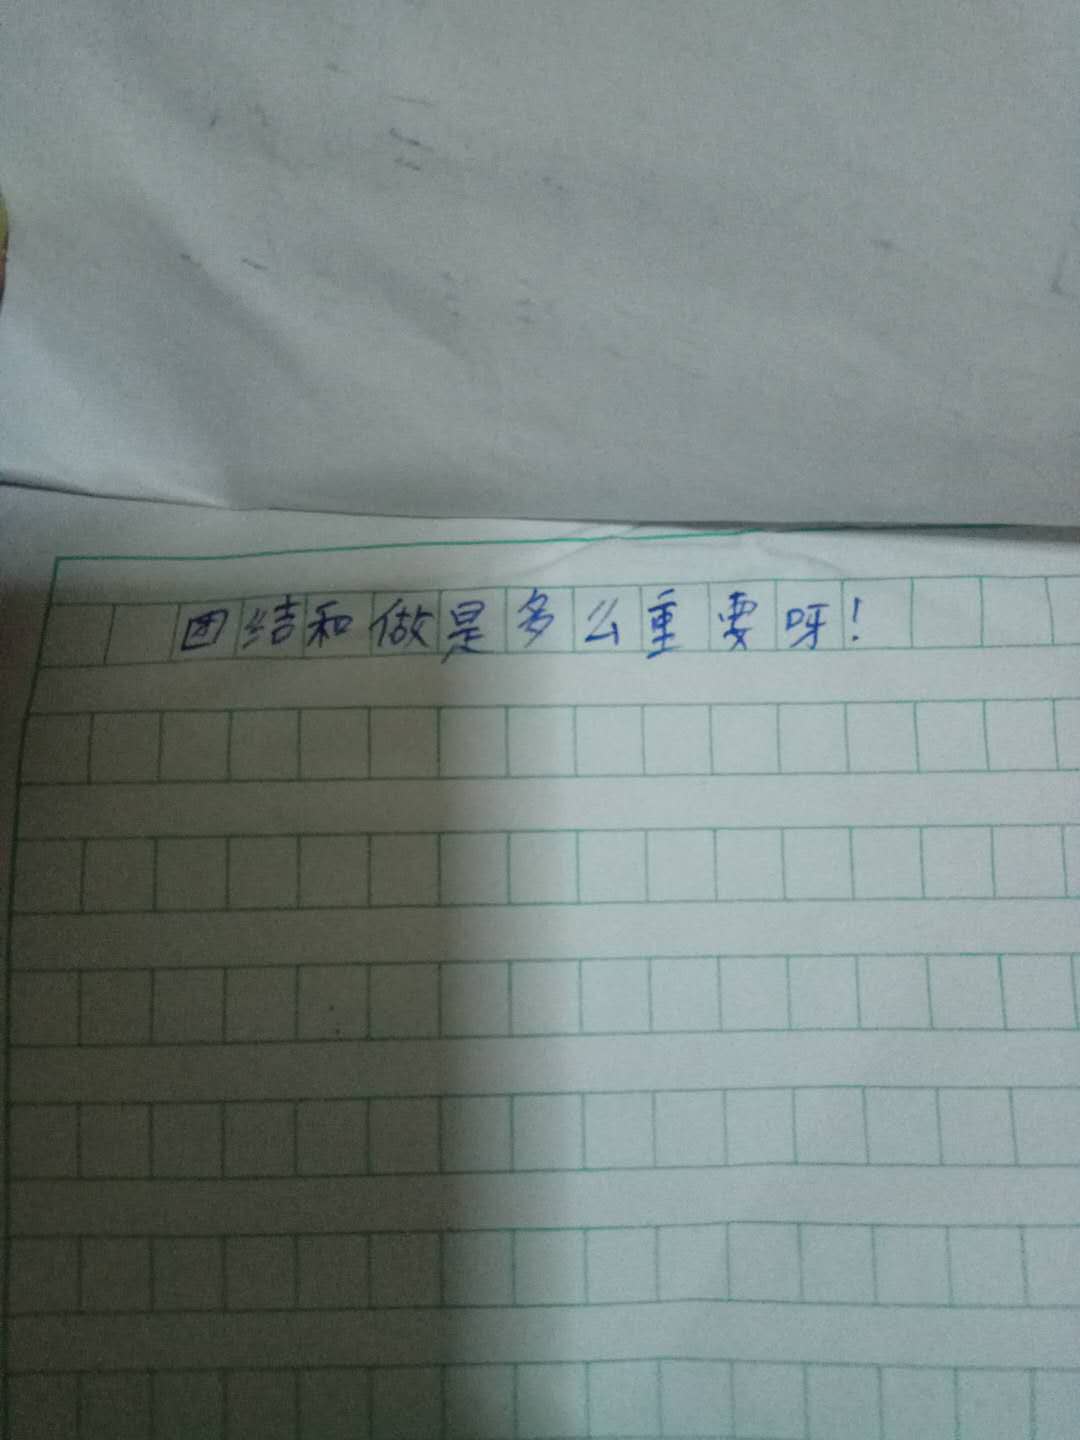 团结和做是多么重要呀！